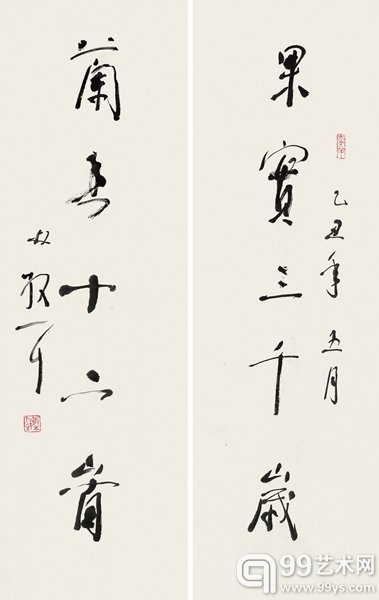 果實三千歲
乙丑年 五月
蘭香十六
99艺术网
www.99ys.com